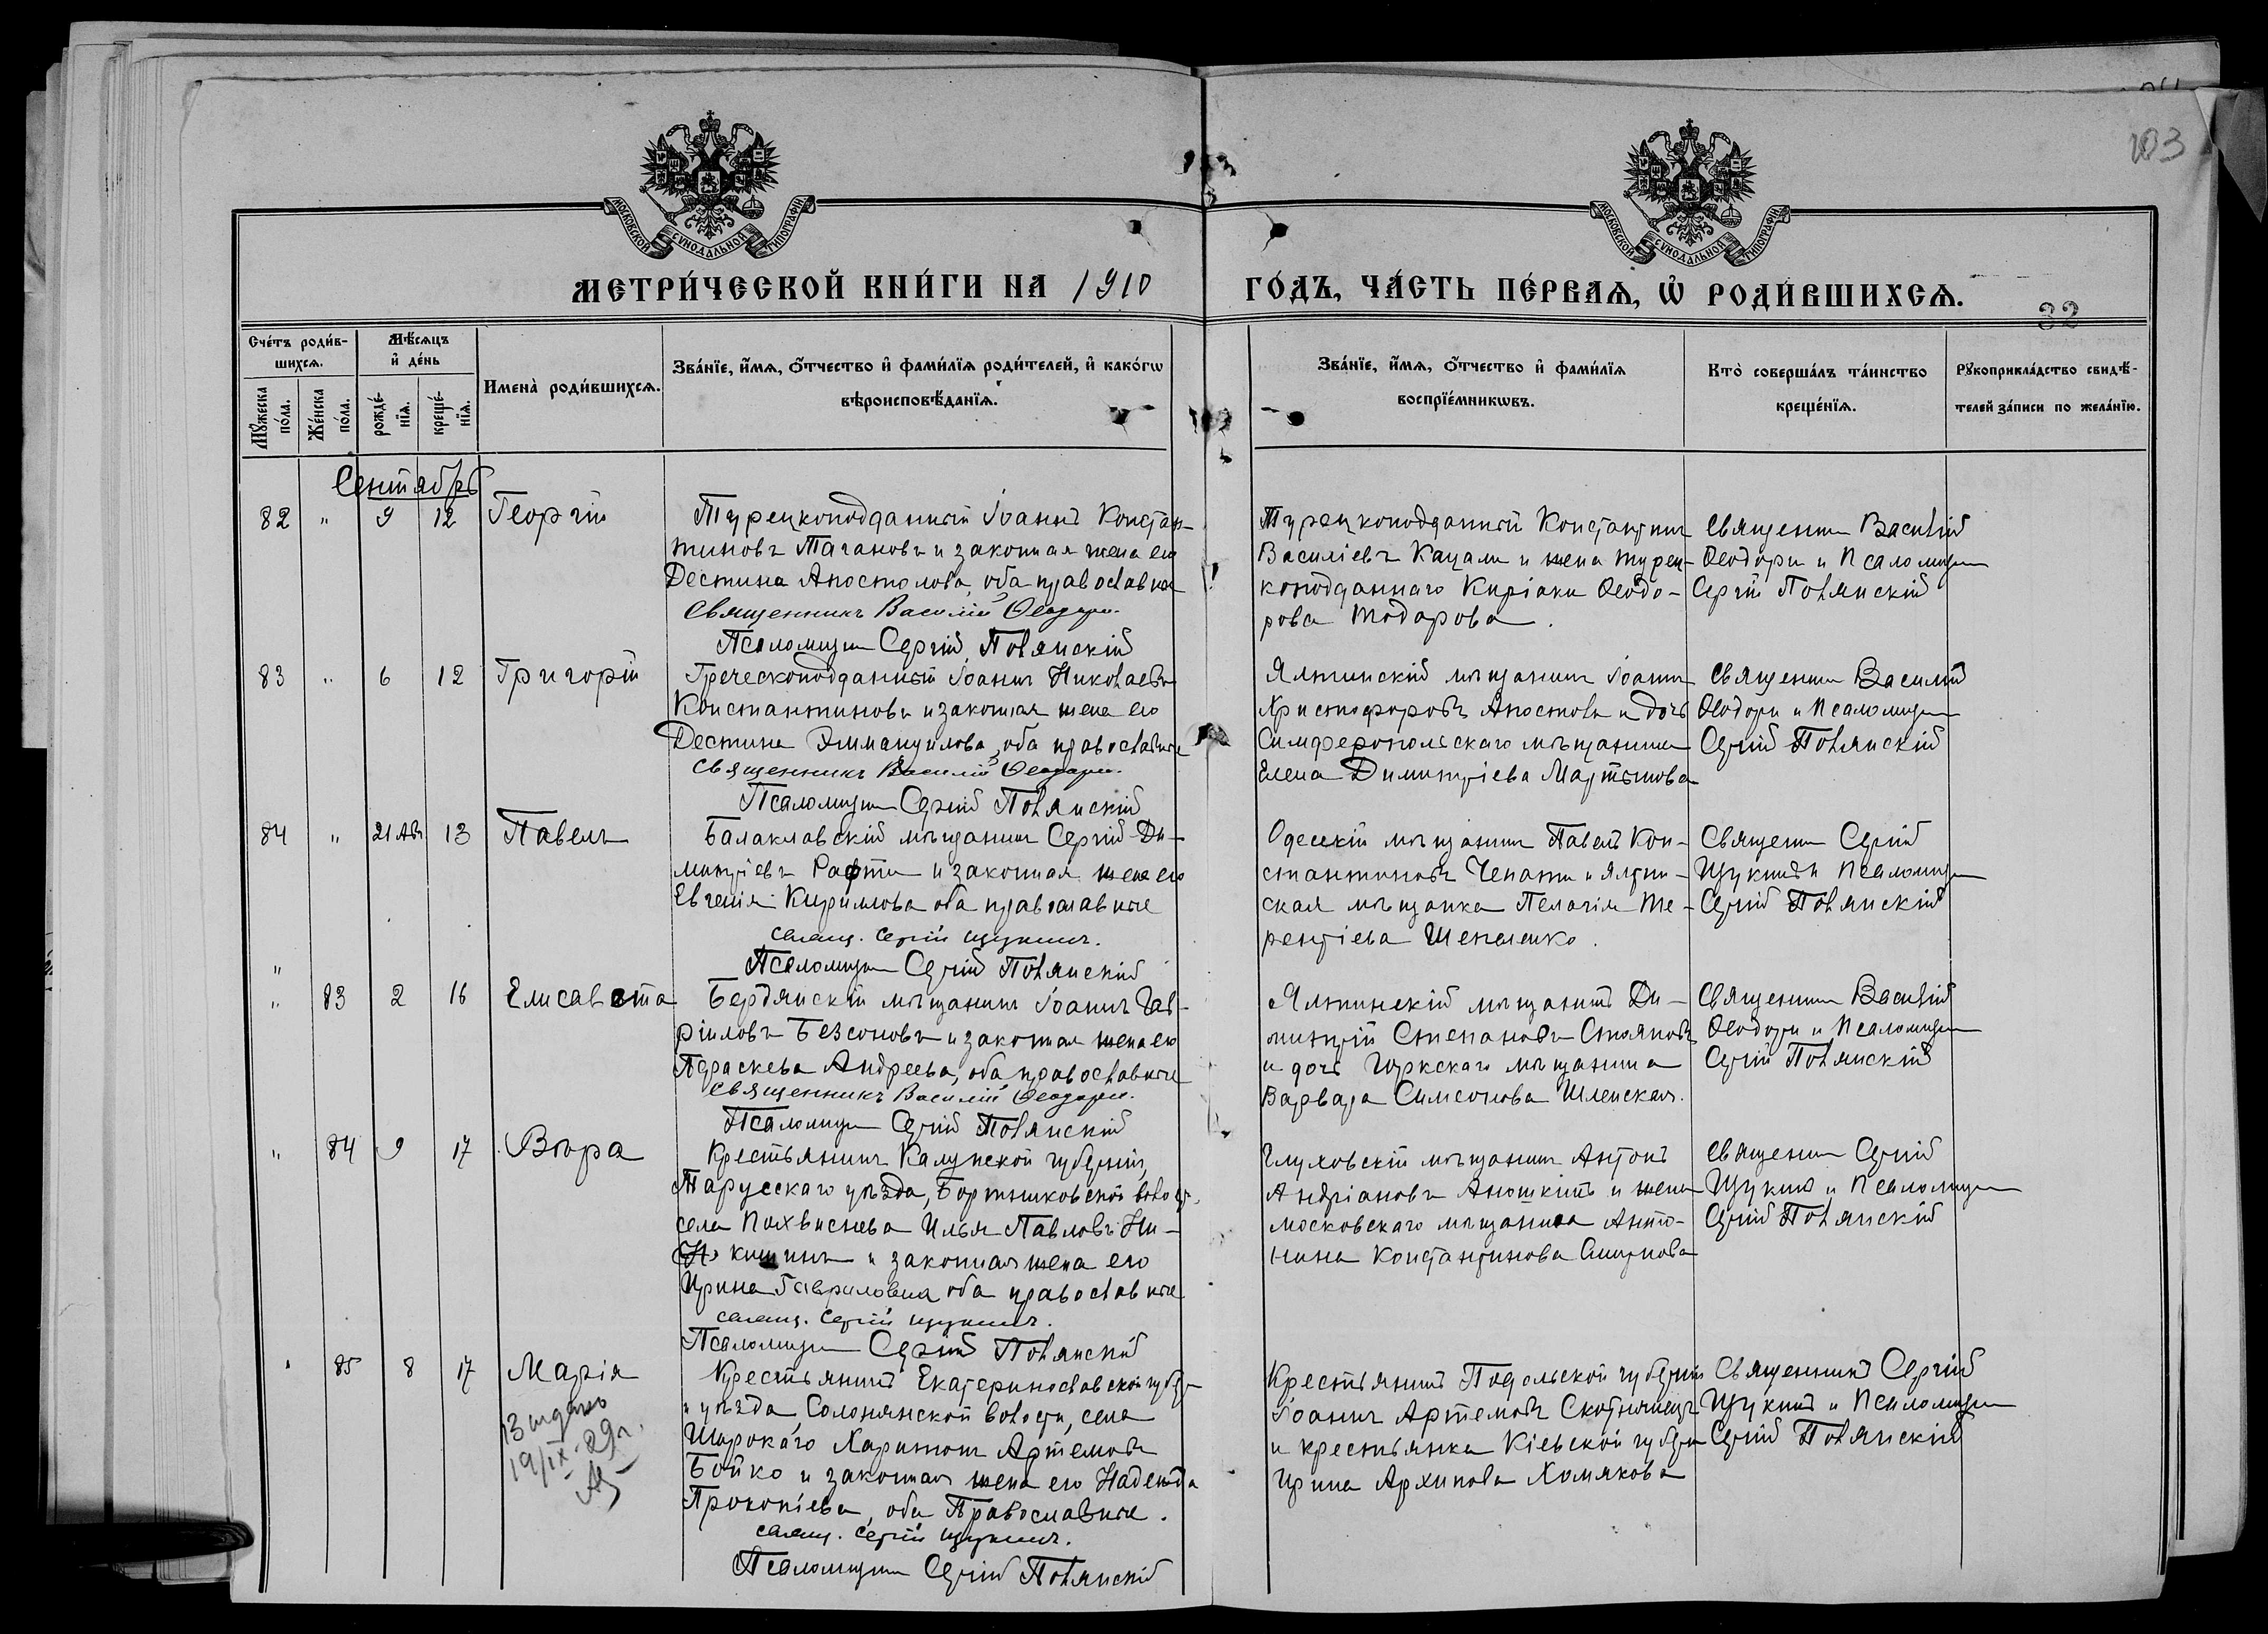 103
МОСКОВСКОЙ СУНОДАЛЬНОЙ ТИПОГРАФІИ
МОСКОВСКОЙ СУНОДАЛЬНОЙ ТИПОГРАФІИ
МЕТРИ́ЧЕСКОЙ КНИ́ГИ НА 1910 ГО́ДЪ, ЧА́СТЬ ПЕ́РВАѦ, Ѡ҆ РОДИ́ВШИХСѦ.
32
Сче́тъ роди́в-
шихсѧ.
Мѣ́сѧцъ
и҆ де́нь
Мꙋ́жеска
по́ла.
Же́нска
по́ла.
рожде́-
нїѧ.
креще́-
нїѧ.
Имена̀ роди́вшихсѧ.
Зва́нїе, и҆́мѧ, ѻ҆́тчество и҆ фами́лїѧ роди́телей, и҆ како́гѡ
вѣроисповѣ́данїѧ.
Зва́нїе, и҆́мѧ, ѻ҆́тчество и҆ фами́лїѧ
воспрїе́мникѡвъ.
Кто̀ соверша́лъ та́инство
креще́нїѧ.
Рꙋкоприкла́дство свидѣ́-
телей за́писи по жела́нїю.
Сентябрь
82 " 9 12 Георгій
Турецкоподданный Іоаннъ Констан-
тиновъ Тагановъ и законная жена его
Дестина Апостолова, оба православные
Священникъ Василій Ѳеодори.
Псаломщикъ Сергій Полянскій
Турецкоподданный Константинъ
Василіевъ Кацали и жена турец-
коподданнаго Киріаки Ѳеодо-
рова Тодорова.
Священникъ Василій
Ѳеодори и Псаломщикъ
Сергій Полянскій
83 " 6 12 Григорій
Греческоподданный Іоаннъ Николаевъ
Константиновъ и законная жена его
Дестина Эммануилова, оба православные
Священникъ Василій Ѳеодори.
Псаломщикъ Сергій Полянскій
Ялтинскій мѣщанинъ Іоаннъ
Христофоровъ Апостоли и дочь
Симферопольскаго мѣщанина
Елена Димитріева Мартынова
Священникъ Василій
Ѳеодори и Псаломщикъ
Сергій Полянскій
84 " 21 Авг 13 Павелъ
Балаклавскій мѣщанинъ Сергій Ди-
митріевъ Рафти и законная жена его
Евгенія Кириллова оба православные
свящ. Сергій Щукинъ.
Псаломщикъ Сергій Полянскій
Одесскій мѣщанинъ Павелъ Кон-
стантиновъ Чепати и Ялтин-
ская мѣщанка Пелагія Те-
рентіева Шепеленко.
Священникъ Сергій
Щукинъ и Псаломщикъ
Сергій Полянскій
"
" 83 2 16 Елисавета
Бердянскій мѣщанинъ Іоаннъ Гав-
ріиловъ Безсоновъ и законная жена его
Параскева Андреева, оба православные
Священникъ Василій Ѳеодори.
Псаломщикъ Сергій Полянскій
Ялтинскій мѣщанинъ Ди-
митрій Степановъ Стояновъ
и дочь мѣщанина
Варвара Симеонова
Священникъ Василій
Ѳеодори и Псаломщикъ
Сергій Полянскій
" 84 9 17 Вѣра
Крестьянинъ Калужской губерніи,
Тарусскаго уѣзда, Бортниковской волости,
села Похвиснева Илья Павловъ Ни-
кишинъ и законная жена его
Ирина Гавриловна оба православные
свящ. Сергій Щукинъ.
Псаломщикъ Сергій Полянскій
Глуховскій мѣщанинъ Антонъ
Андріановъ Аношкинъ и жена
московскаго мѣщанина Анто-
нина Константинова Смирнова
Священникъ Сергій
Щукинъ и Псаломщикъ
Сергій Полянскій
" 85 8 17 Марія
Выдано
19/IX-29г.
Крестьянинъ Екатеринославской губерн
и уѣзда Солонянской волости, села
Широкаго Харитонъ Артемовъ
Бойко и законная жена его Надежда
Прокопіева, оба Православные.
свящ. Сергій Щукинъ.
Псаломщикъ Сергій Полянскій
Крестьянинъ Подольской губерніи
Іоаннъ Артемовъ
и крестьянка Кіевской губерн
Ирина Архипова Хомякова
Священникъ Сергій
Щукинъ и Псаломщикъ
Сергій Полянскій